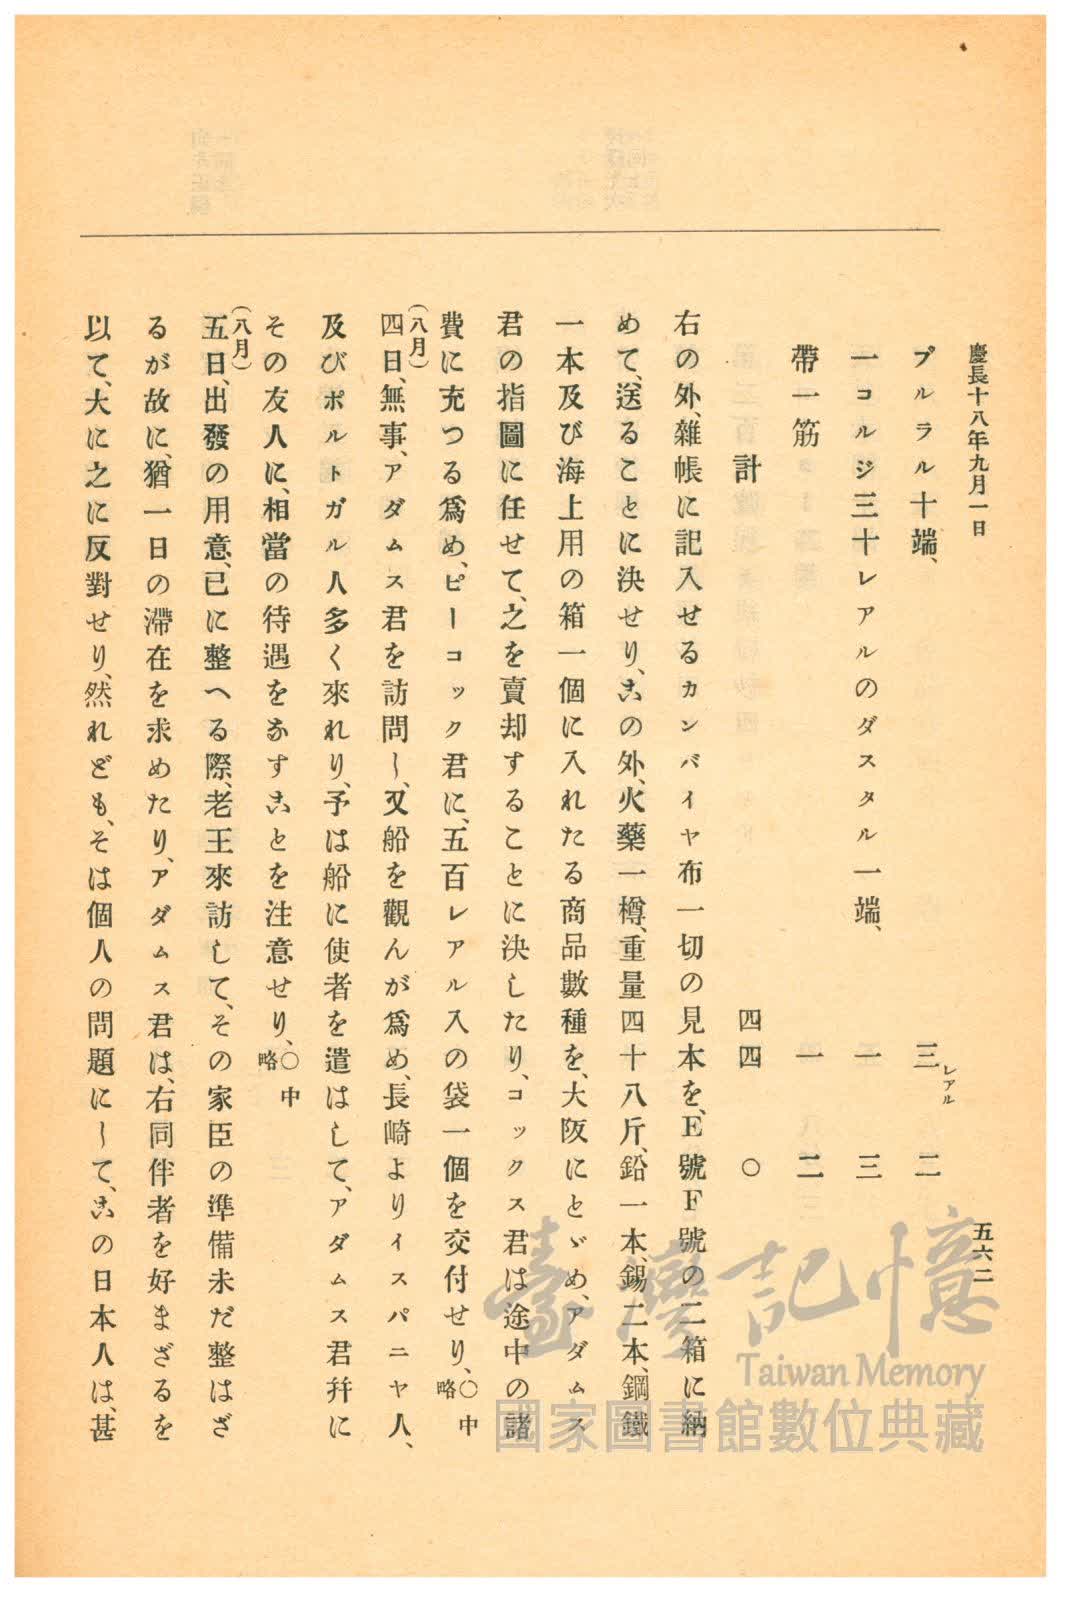 慶長十八年九月一日
五六二
プルラル十端、 三レアル 二
一コルジ三十レアルのダスタル一端、 一 三
帶一筋 一 二
計 四四 〇
右の外、雜帳に記入せるカンバイヤ布一切の見本を、E號F號の二箱に納
めて、送ることに決せり、この外、火藥一樽、重量四十八斤、鉛一本、錫二本、鋼鐵
一本及び海上用の箱一個に入れたる商品數種を、大阪にとゞめ、アダムス
君の指圖に任せて、之を賣却することに決したり、コックス君は途中の諸
費に充つる爲め、ピーコック君に、五百レアル入の袋一個を交付せり、〇中略
(八月)
四日、無事、アダムス君を訪問し、又船を觀んが爲め、長崎よりイスパニヤ人、
及びポルトガル人多く來れり、予は船に使者を遣はして、アダムス君幷に
その友人に、相當の待遇をなすことを注意せり、〇中略
(八月)
五日、出發の用意、已に整へる際、老王來訪して、その家臣の準備未だ整はざ
るが故に、猶一日の滯在を求めたり、アダムス君は、右同伴者を好まざるを
以て、大に之に反對せり、然れども、そは個人の問題にして、この日本人は、甚
臺灣記憶
Taiwan Memory
國家圖書館數位典藏